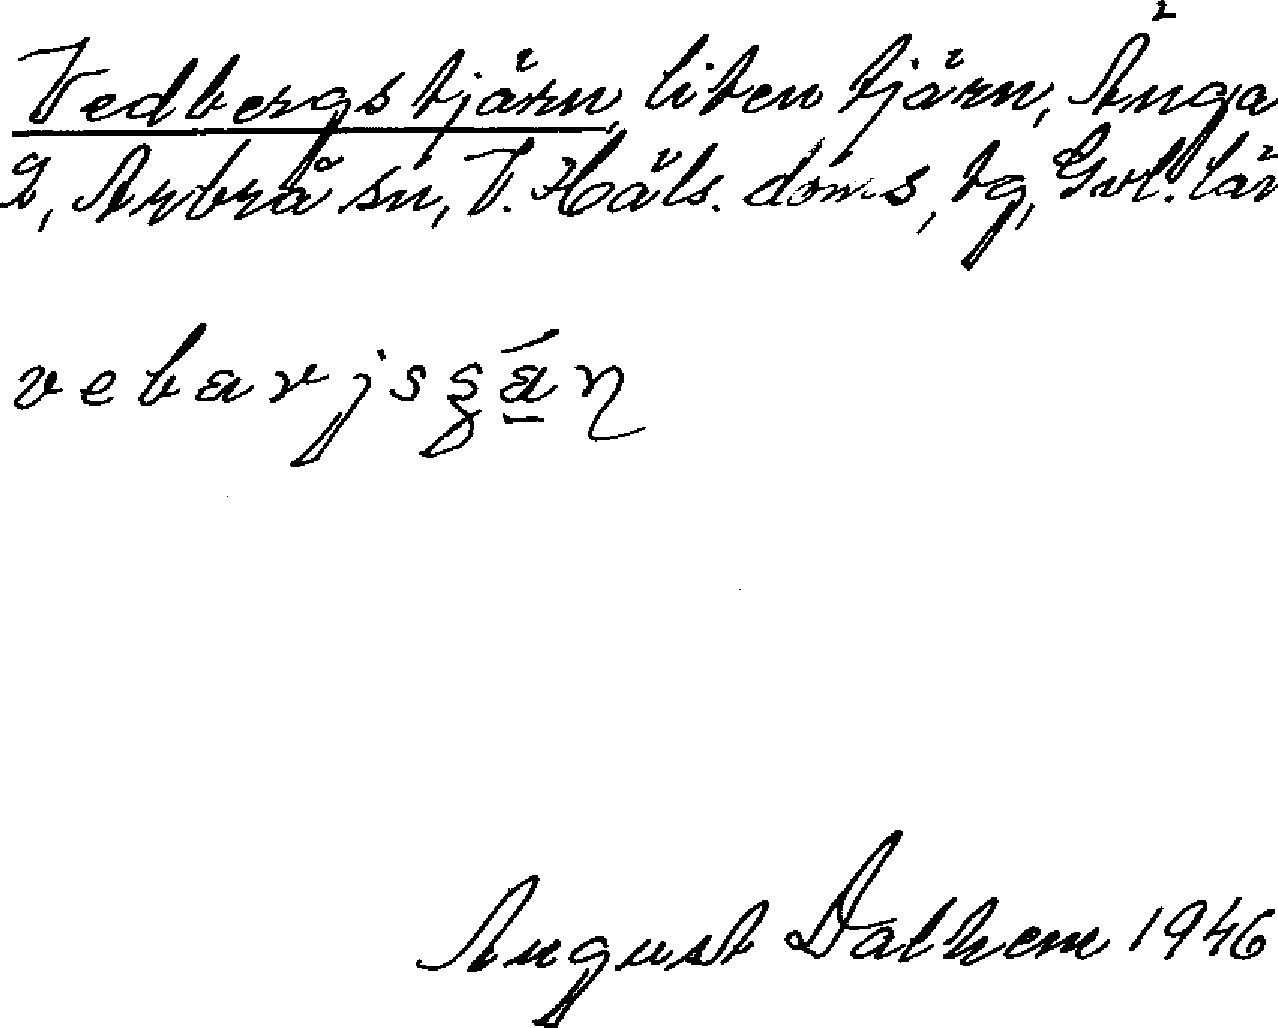 Vedbergstjärn, liten tjärn, Änga
2, Arbrå sn, V. Häls. doms, tg, Gvl. län
vebɛrjsʂɛ́n
August Dalhem 1946